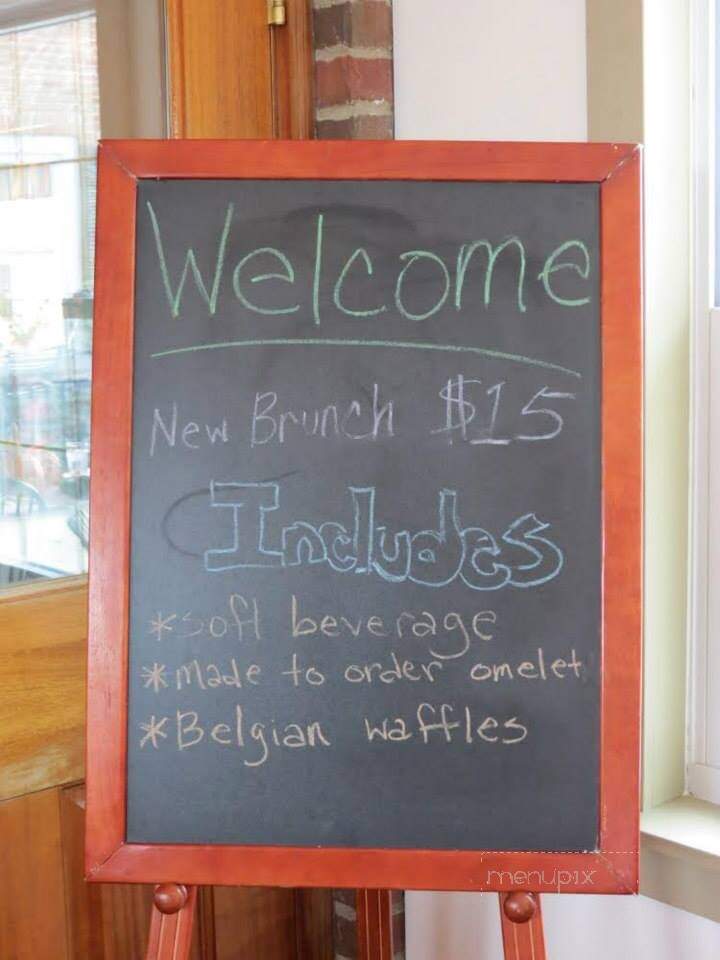 Welcome
New Brunch $15
Includes
*Soft beverage
*Made to order omelet
*Belgian waffles
menupix